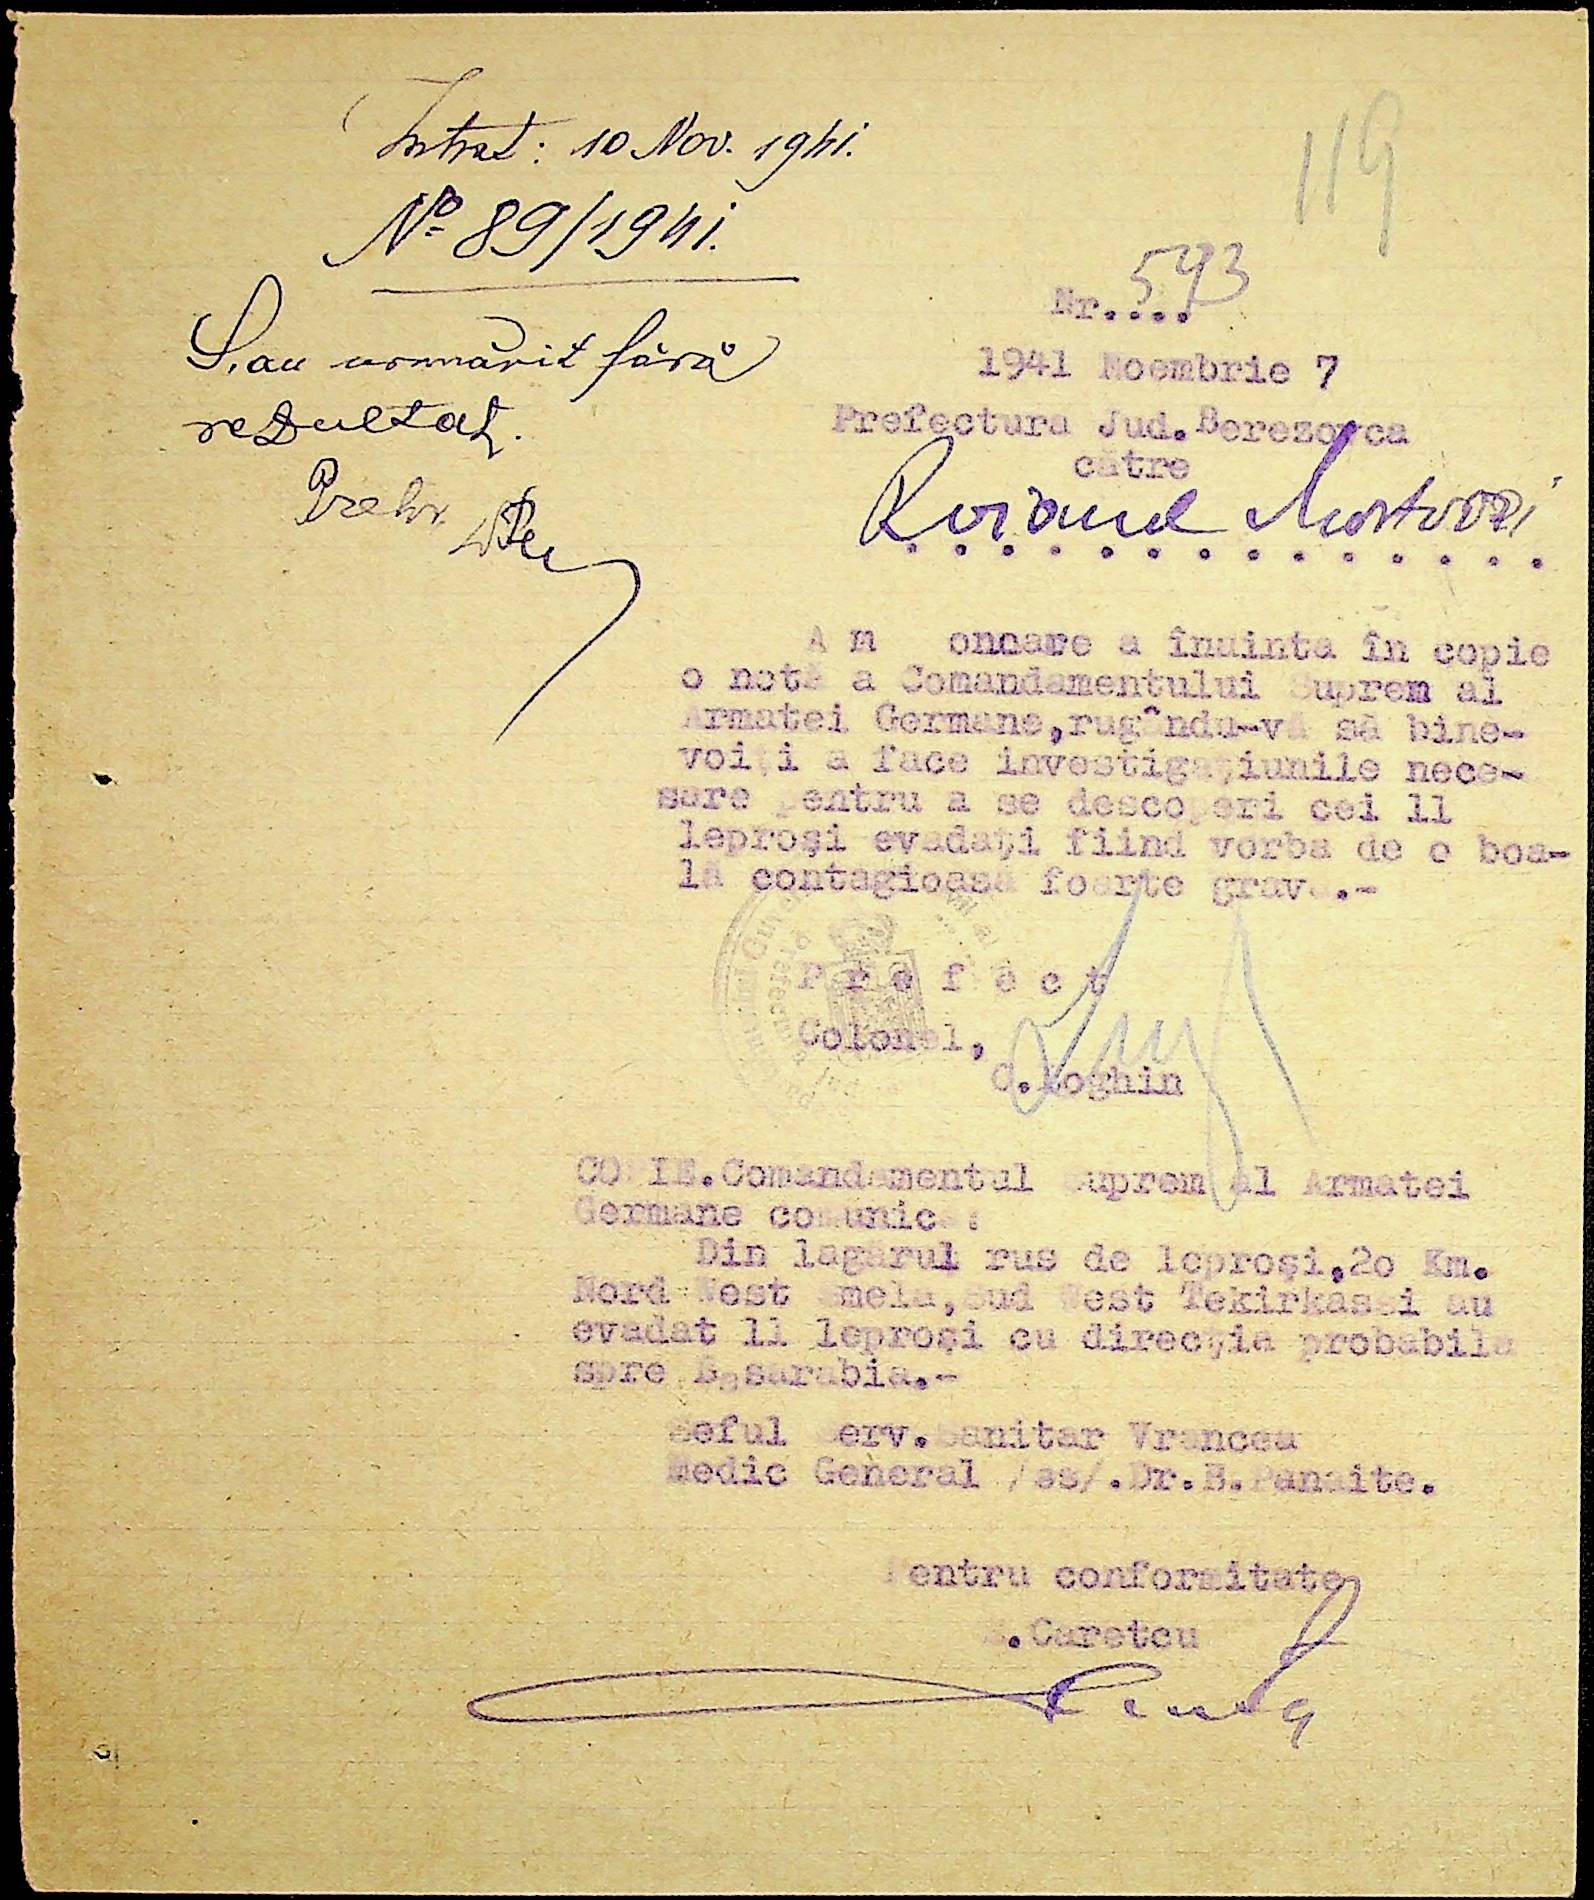 Intrat: 10 Nov. 1941.
Nº 89/1941.
119
S.au urmărit fără
rezultat.
Nr.... 593
1941 Noembrie 7
Prefectura Jud.Berezovca
către
Raionul Mostovoi
. . . . . . . . . . . . . .
A m onoare a înainta în copie
o notă a Comandamentului Suprem al
Armatei Germane,rugându-vă să bine-
voiți a face investigațiunile nece-
sare pentru a se descoperi cei 11
leproși evadați fiind vorba de o boa-
lă contagioasă foarte grava.-
P r e f e c t
Colonel,
C.Loghin
COPIE.Comandamentul Suprem al Armatei
Germane comunica:
Din lagărul rus de leproși,2o Km.
Nord West Smela,Sud West Tekirkassi au
evadat 11 leproși cu direcția probabila
spre Basarabia.-
Seful Serv.Sanitar Vrancea
Medic General /ss/.Dr.E.Panaite.
Pentru conformitate
.Caretcu